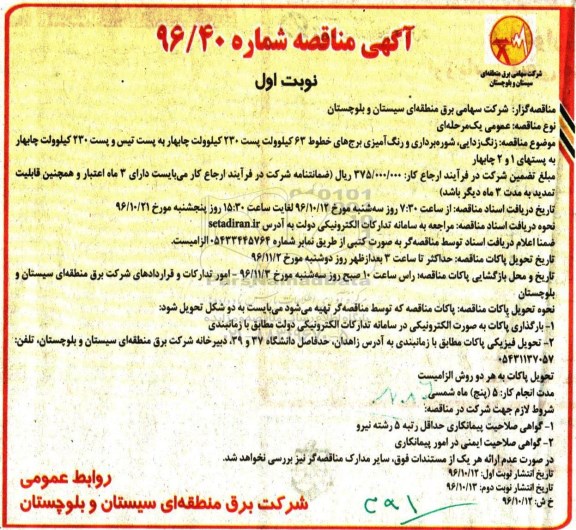 آگهی مناقصه شماره ۹۶/۴۰
نوبت اول
شرکت سهامی برق منطقه‌ای
سیستان و بلوچستان
مناقصه‌گزار: شرکت سهامی برق منطقه‌ای سیستان و بلوچستان
نوع مناقصه: عمومی یک‌مرحله‌ای
موضوع مناقصه: زنگ‌زدایی، شوره‌برداری و رنگ‌آمیزی برج‌های خطوط ۶۳ کیلوولت پست ۲۳۰ کیلوولت چابهار به پست تیس و پست ۲۳۰ کیلوولت چابهار
به پستهای ۱ و ۲ چابهار
مبلغ تضمین شرکت در فرآیند ارجاع کار: ۳۷۵/۰۰۰/۰۰۰ ریال (ضمانتنامه شرکت در فرآیند ارجاع کار می‌بایست دارای ۳ ماه اعتبار و همچنین قابلیت
تمدید به مدت ۳ ماه دیگر باشد)
تاریخ دریافت اسناد مناقصه: از ساعت ۷:۳۰ روز سه‌شنبه مورخ ۹۶/۱۰/۱۲ لغایت ساعت ۱۵:۳۰ روز پنجشنبه مورخ ۹۶/۱۰/۲۱
نحوه دریافت اسناد مناقصه: مراجعه به سامانه تدارکات الکترونیکی دولت به آدرس setadiran.ir
ضمنا اعلام دریافت اسناد توسط مناقصه‌گر به صورت کتبی از طریق نمابر شماره ۰۵۴۳۳۴۴۵۷۶۴ الزامیست.
تاریخ تحویل پاکات مناقصه: حداکثر تا ساعت ۳ بعدازظهر روز دوشنبه مورخ ۹۶/۱۱/۲
تاریخ و محل بازگشایی پاکات مناقصه: راس ساعت ۱۰ صبح روز سه‌شنبه مورخ ۹۶/۱۱/۳ - امور تدارکات و قراردادهای شرکت برق منطقه‌ای سیستان و
بلوچستان
نحوه تحویل پاکات مناقصه: پاکات مناقصه که توسط مناقصه‌گر تهیه می‌شود می‌بایست به دو شکل تحویل شود:
۱- بارگذاری پاکات به صورت الکترونیکی در سامانه تدارکات الکترونیکی دولت مطابق با زمانبندی
۲- تحویل فیزیکی پاکات مطابق با زمانبندی به آدرس زاهدان، حدفاصل دانشگاه ۳۷ و ۳۹، دبیرخانه شرکت برق منطقه‌ای سیستان و بلوچستان، تلفن:
۰۵۴۳۱۱۳۷۰۵۷
تحویل پاکات به هر دو روش الزامیست
مدت انجام کار: ۵ (پنج) ماه شمسی
شروط لازم جهت شرکت در مناقصه:
۱- گواهی صلاحیت پیمانکاری حداقل رتبه ۵ رشته نیرو
۲- گواهی صلاحیت ایمنی در امور پیمانکاری
در صورت عدم ارائه هر یک از مستندات فوق، سایر مدارک مناقصه‌گر نیز بررسی نخواهد شد.
تاریخ انتشار نوبت اول: ۹۶/۱۰/۱۲
تاریخ انتشار نوبت دوم: ۹۶/۱۰/۱۳
خ ش: ۹۶/۱۰/۱۲
روابط عمومی
شرکت برق منطقه‌ای سیستان و بلوچستان